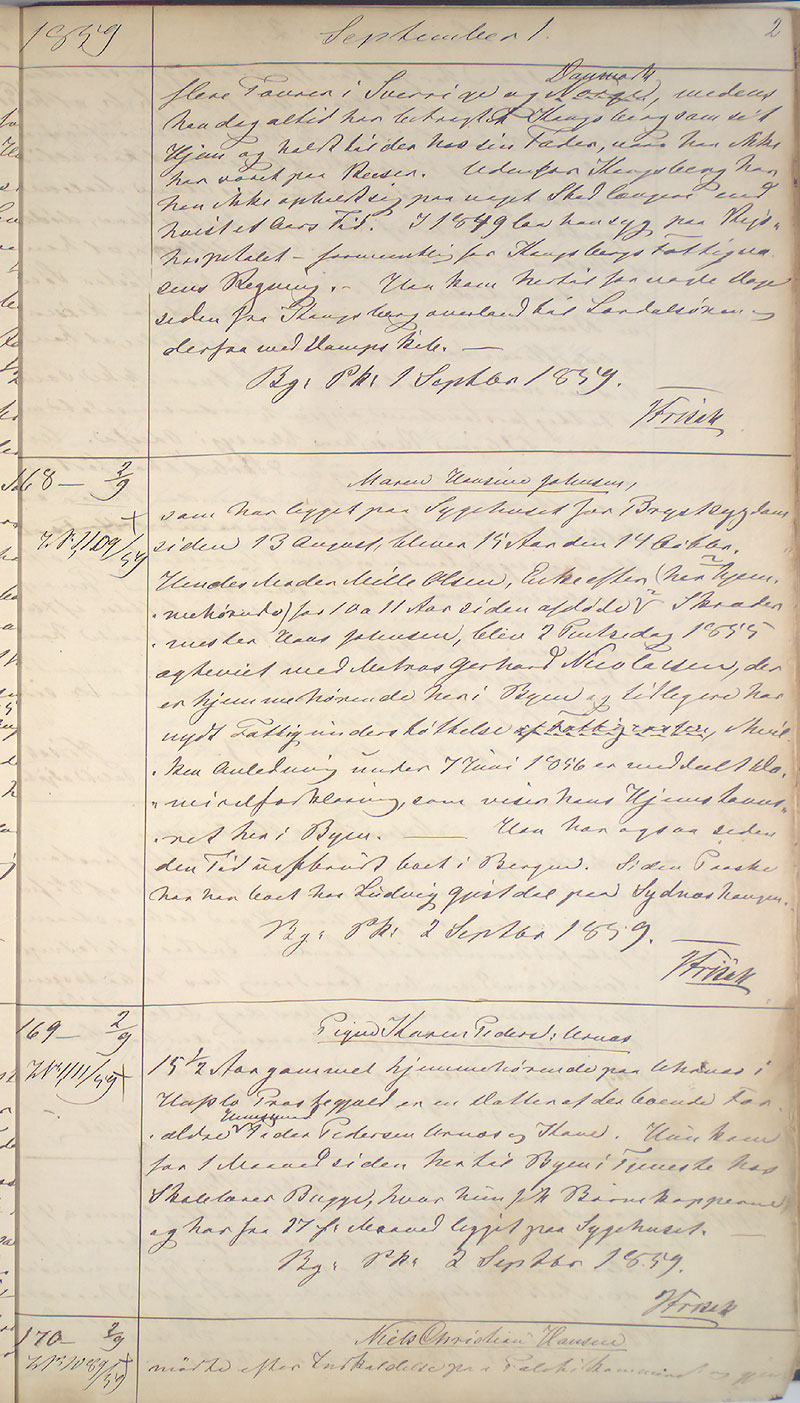 1859 September 1. 2
flere Tourer i Sverrige og Norge, Danmark medens
han dog altid har betragtet Kongsberg som sit
Hjem og holdt til der hos sin Fader, naar han ikke
har været paa Reiser. Udenfor Kongsberg har
han ikke opholdt sig paa noget Sted længere end
høist et Aars Tid. I 1849 laa han syg paa Rigs-
hospitalet - formentlig for Kongsbergs Fattigvæ
sens Regning. - Han kom hertil for nogle Dage
siden fra Kongsberg overland til Lærdalsøren og
derfra med Dampskib. —
Bg: Pk: 1 Septbr 1859.
HFrisak
168 — 2/9
Maren Hansine Johnsen,
som har ligget paa Sygehuset for Brystsygdom
J.N. 1109/59
siden 13 August, bliver 15 Aar den 14 Octbr.
Hendes Moder Mille Olsen, Enke efter (her hjem-
mehørende) for 10 a 11 Aar siden afdøde Skræder
mester Hans Johnsen, blev 2 Pintsedag 1855
ægteviet med Matros Gerhard Nicolaisen, der
er hjemmehørende her i Byen og tidligere har
nydt Fattigunderstøttelse af Fattigvæsen, i hvil-
ken Anledning under 7 Juni 1856 er meddelt Do-
micilforklaring, som viser hans Hjemstavns-
ret her i Byen. — Han har ogsaa siden
den Tid uafbrudt boet i Bergen. Siden Paaske
har han boet hos Ludvig Gjestdal paa Sydnæshaugen.
Bg: Pk: 2 Septbr 1859.
HFrisak
169 — 2/9
Pigen Karen Pedersd: Arnæs
J.N. 1111/59
15 1/2 Aar gammel hjemmehørende paa Arnæs i
Præstegjæld er en Datter af der boende For-
ældre Huusmand Peder Pedersen Arnæs og Kone. Hun kom
for 1 Maaned siden hertil Byen i Tjeneste hos
Skolelærer Bugge, hvor hun fik Børnekopperne
og har fra 27 f: Maaned ligget paa Sygehuset. —
Bg: Pk: 2 Septbr 1859.
HFrisak
170 — 2/9
Niels Christian Hansen
mødte efter Indkaldelse paa